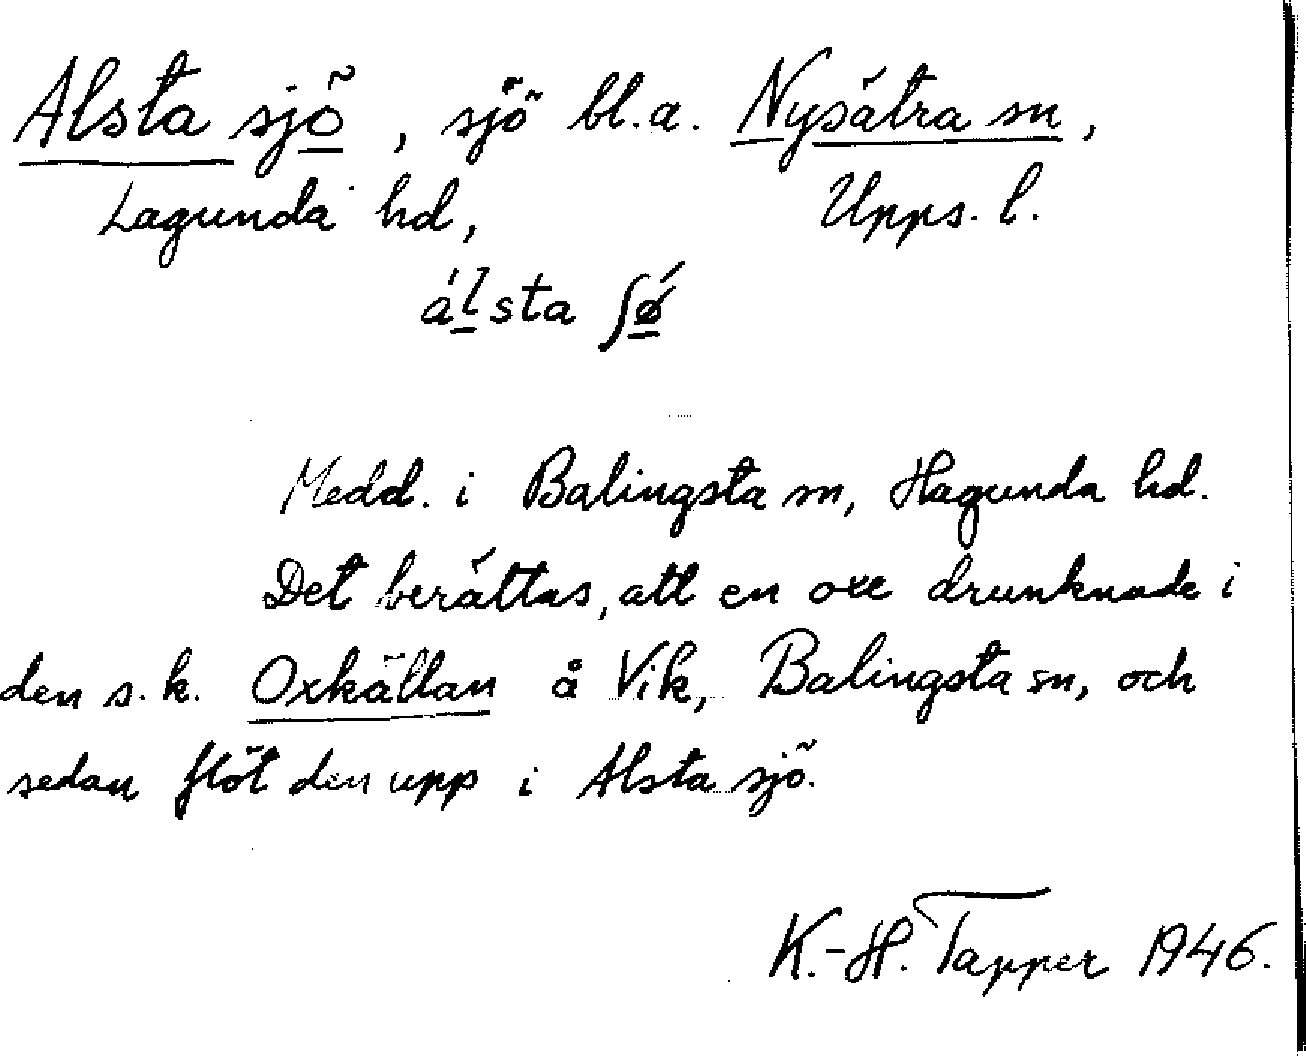 Alsta sjö, sjö bl.a. Nysätra sn,
Lagunda hd, Upps. l.
álsta ʃǿ
Medd. i Balingsta sn, Hagunda hd.
Det berättas, att en oxe drunknade i
den s.k. Oxkällan å Vik, Balingsta sn, och
sedan flöt den upp i Alsta sjö.
K.-H. Tapper 1946.